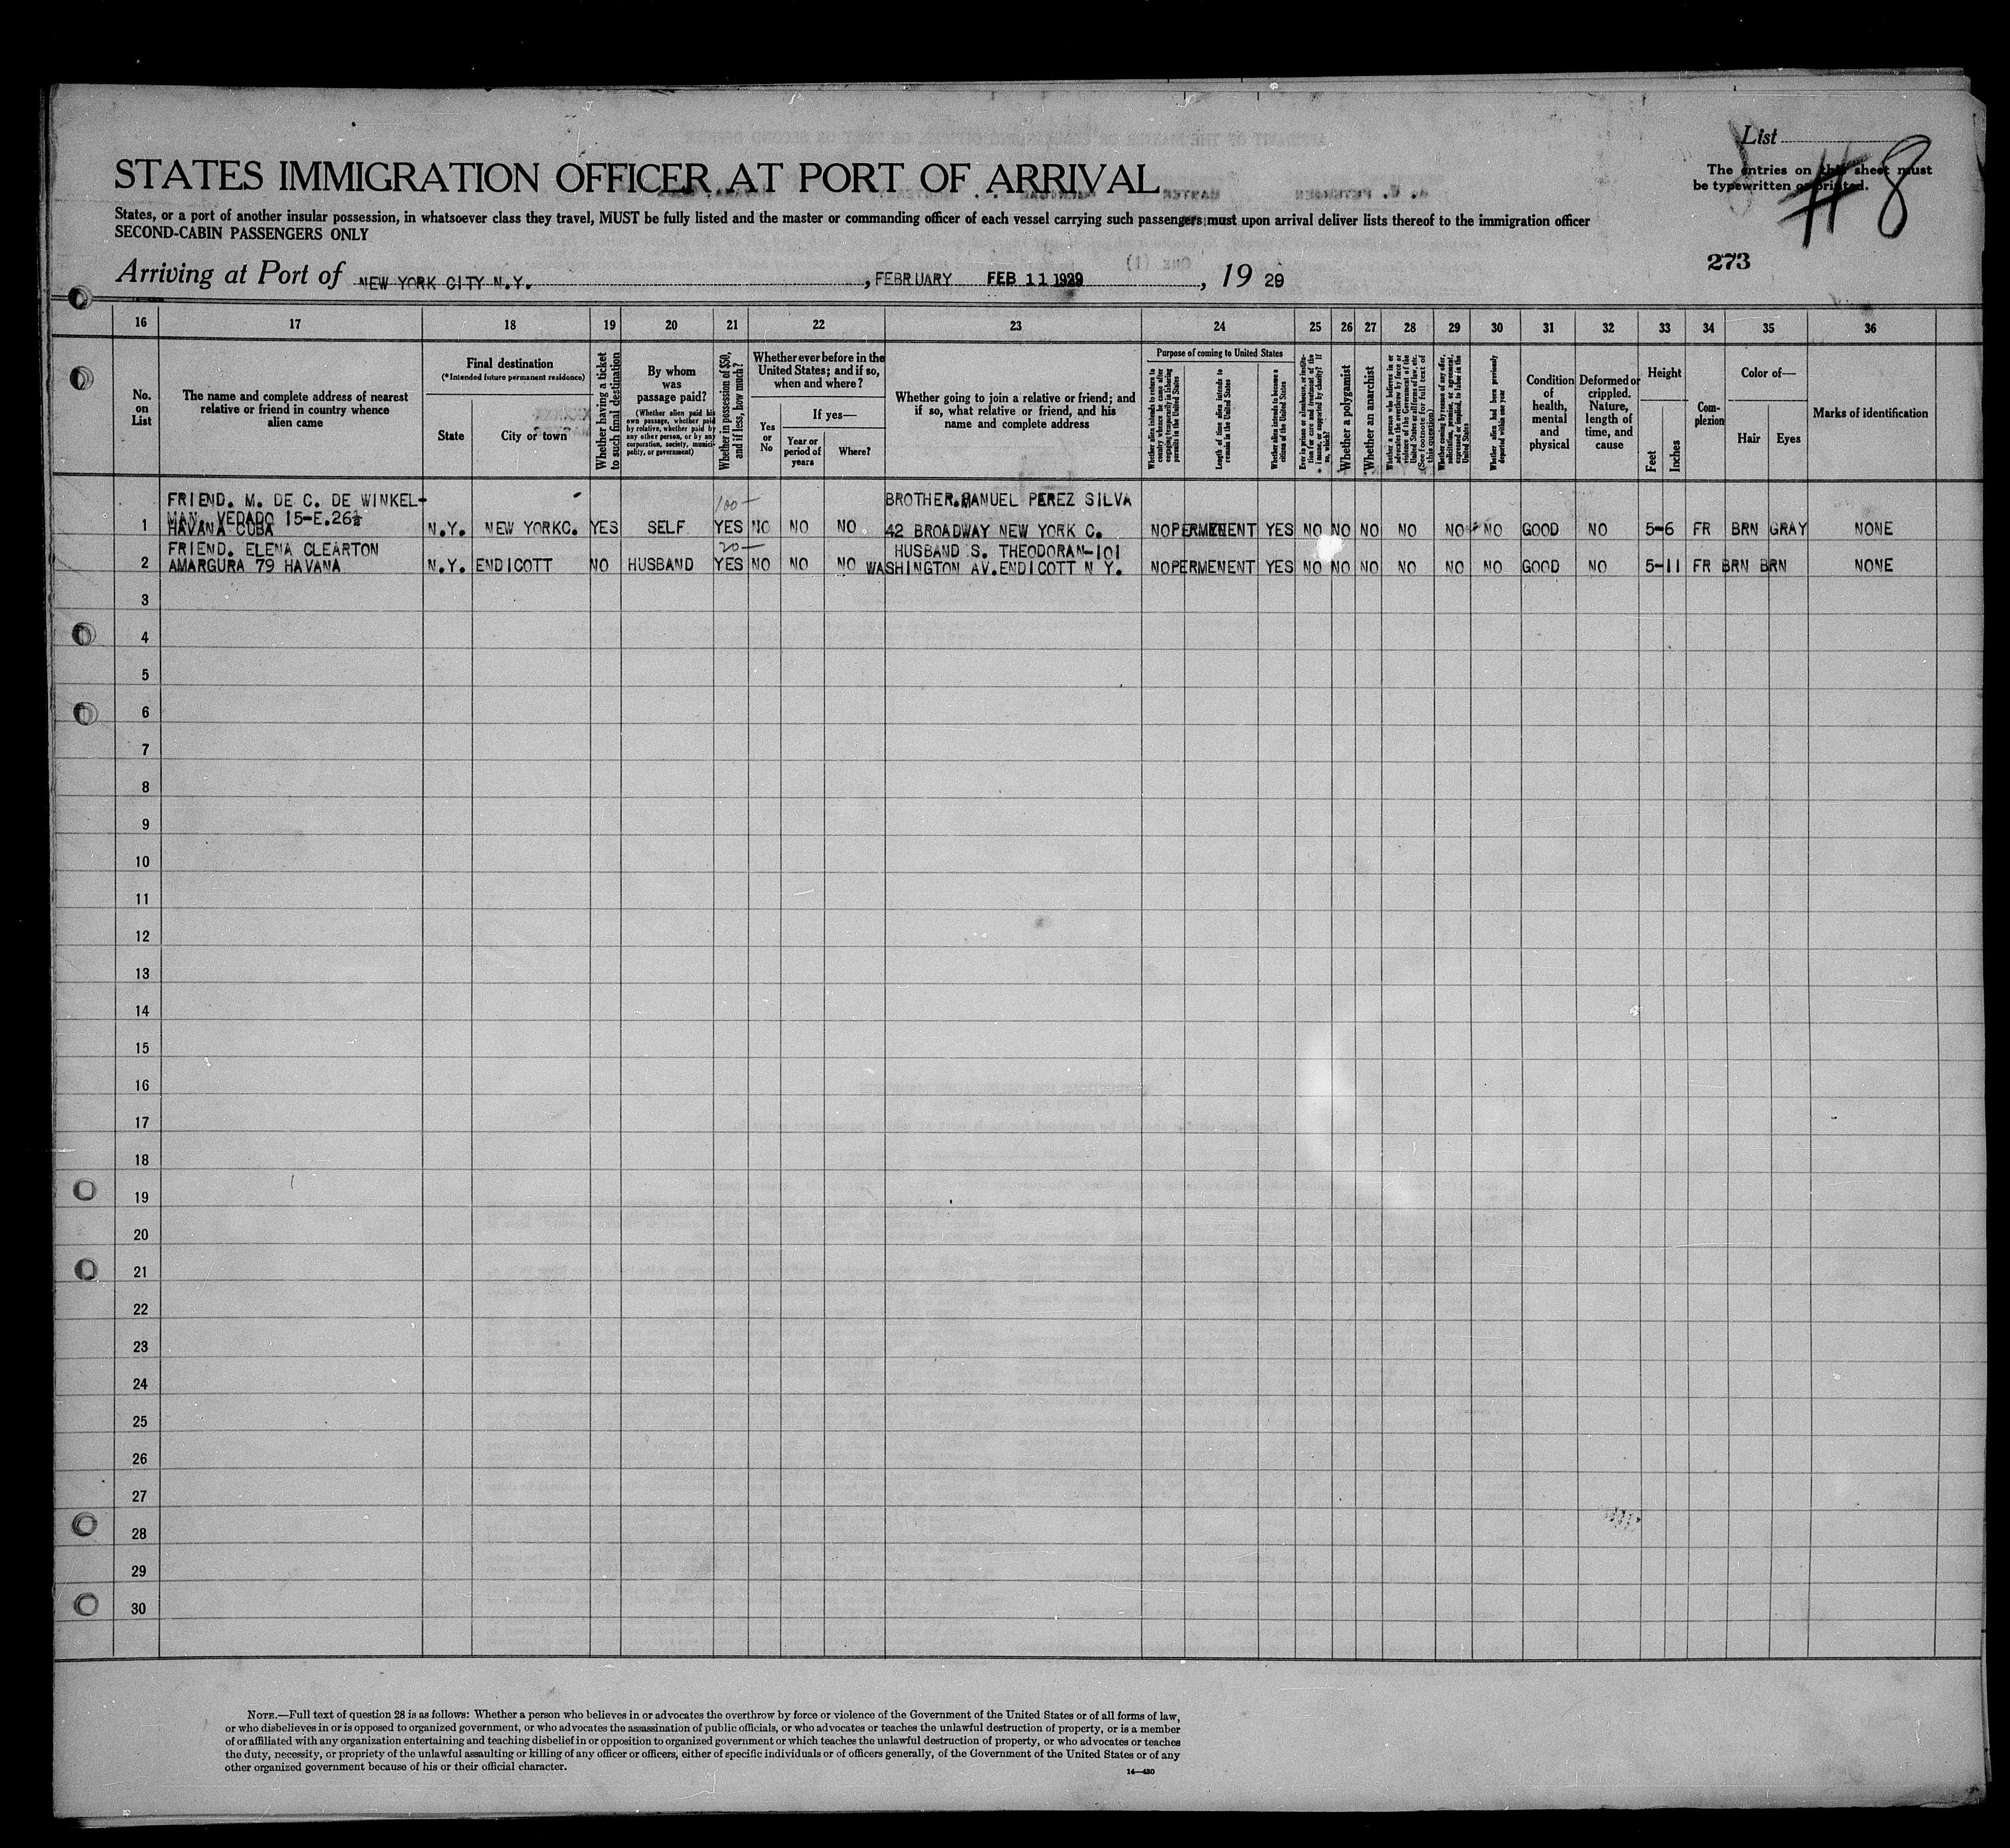 List
The entries on this sheet must
be typewritten or printed.
# 8
STATES IMMIGRATION OFFICER AT PORT OF ARRIVAL
States, or a port of another insular possession, in whatsoever class they travel, MUST be fully listed and the master or commanding officer of each vessel carrying such passengers must upon arrival deliver lists thereof to the immigration officer
SECOND-CABIN PASSENGERS ONLY
273
Arriving at Port of NEW YORK CITY N.Y. , FEBRUARY FEB 11 1929 , 19 29
16 17 18 19 20 21 22 23 24 25 26 27 28 29 30 31 32 33 34 35 36
No. on List
The name and complete address of nearest
relative or friend in country whence
alien came
Final destination
(*Intended future permanent residence)
State
City or town
Whether having a ticket
to such final destination
By whom
was
passage paid?
(Whether alien paid his
own passage, whether paid
by relative, whether paid by
any other person, or by any
corporation, society, munici-
pality, or government)
Whether in possession of $50,
and if less, how much?
Whether ever before in the
United States; and if so,
when and where?
Yes
or
No
If yes—
Year or
period of
years
Where?
Whether going to join a relative or friend; and
if so, what relative or friend, and his
name and complete address
Purpose of coming to United States
Whether alien intends to return to
country whence he came after
engaging temporarily in laboring
pursuits in the United States
Length of time alien intends to
remain in the United States
Whether alien intends to become a
citizen of the United States
Whether a polygamist
Whether an anarchist
(See footnote for full text of
this question)
Whether alien had been previously
deported within one year
Condition
of
health,
mental
and
physical
Deformed or
crippled.
Nature,
length of
time, and
cause
Height
Feet
Inches
Com-
plexion
Color of—
Hair
Eyes
Marks of identification
FRIEND. M. DE C. DE WINKEL- 100- BROTHER.MANUEL PEREZ SILVA
MAN. VEDADO 15-E.26½
1 HAVANA CUBA N.Y. NEW YORKC. YES SELF YES NO NO NO 42 BROADWAY NEW YORK C. NO PERMENENT YES NO NO NO NO NO NO GOOD NO 5-6 FR BRN GRAY NONE
FRIEND. ELENA CLEARTON 20- HUSBAND S. THEODORAN-101
2 AMARGURA 79 HAVANA N.Y. ENDICOTT NO HUSBAND YES NO NO NO WASHINGTON AV.ENDICOTT N Y. NO PERMENENT YES NO NO NO NO NO NO GOOD NO 5-11 FR BRN BRN NONE
3
4
5
6
7
8
9
10
11
12
13
14
15
16
17
18
19
20
21
22
23
24
25
26
27
28
29
30
NOTE.—Full text of question 28 is as follows: Whether a person who believes in or advocates the overthrow by force or violence of the Government of the United States or of all forms of law,
or who disbelieves in or is opposed to organized government, or who advocates the assassination of public officials, or who advocates or teaches the unlawful destruction of property, or is a member
of or affiliated with any organization entertaining and teaching disbelief in or opposition to organized government or which teaches the unlawful destruction of property, or who advocates or teaches
the duty, necessity, or propriety of the unlawful assaulting or killing of any officer or officers, either of specific individuals or of officers generally, of the Government of the United States or of any
other organized government because of his or their official character.
14—430